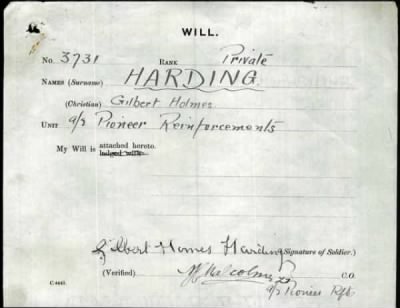 WILL.
No. 3731 RANK Private
NAMES (Surname) HARDING.
(Christian) Gilbert Holmes
UNIT 9/3 Pioneer Reinforcements
My Will is attached hereto.
lodged with
Gilbert Homes Harding (Signature of Soldier.)
(Verified) Malcolm C.O.
9/3 Pioneer Rfts
C.4443.